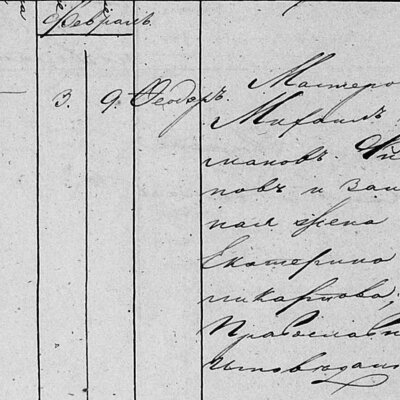 Февраль
3. 9. Ѳеодоръ. Мастеро
Михаилъ
мановъ.
новъ и зак
ная жена
Екатерина
Никартова,
Православн
исповѣдан